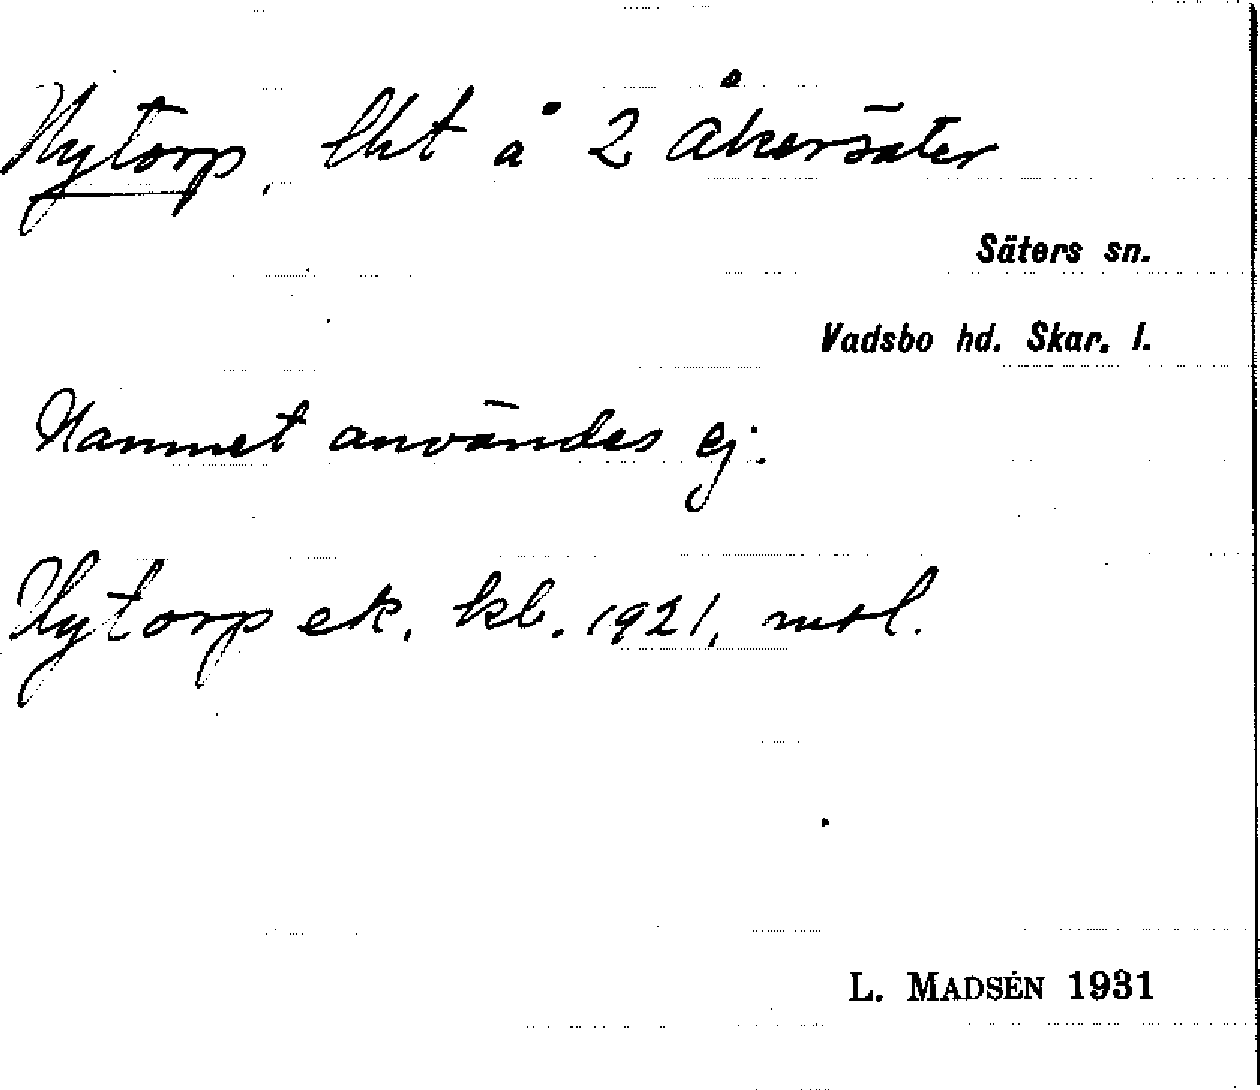 Nytorp, lht å 2 Åkersäter
Säters sn.
Vadsbo hd. Skar. l.
Namnet användes ej.
Nytorp ek. kb. 1921, mtl.
L. MADSÉN 1931